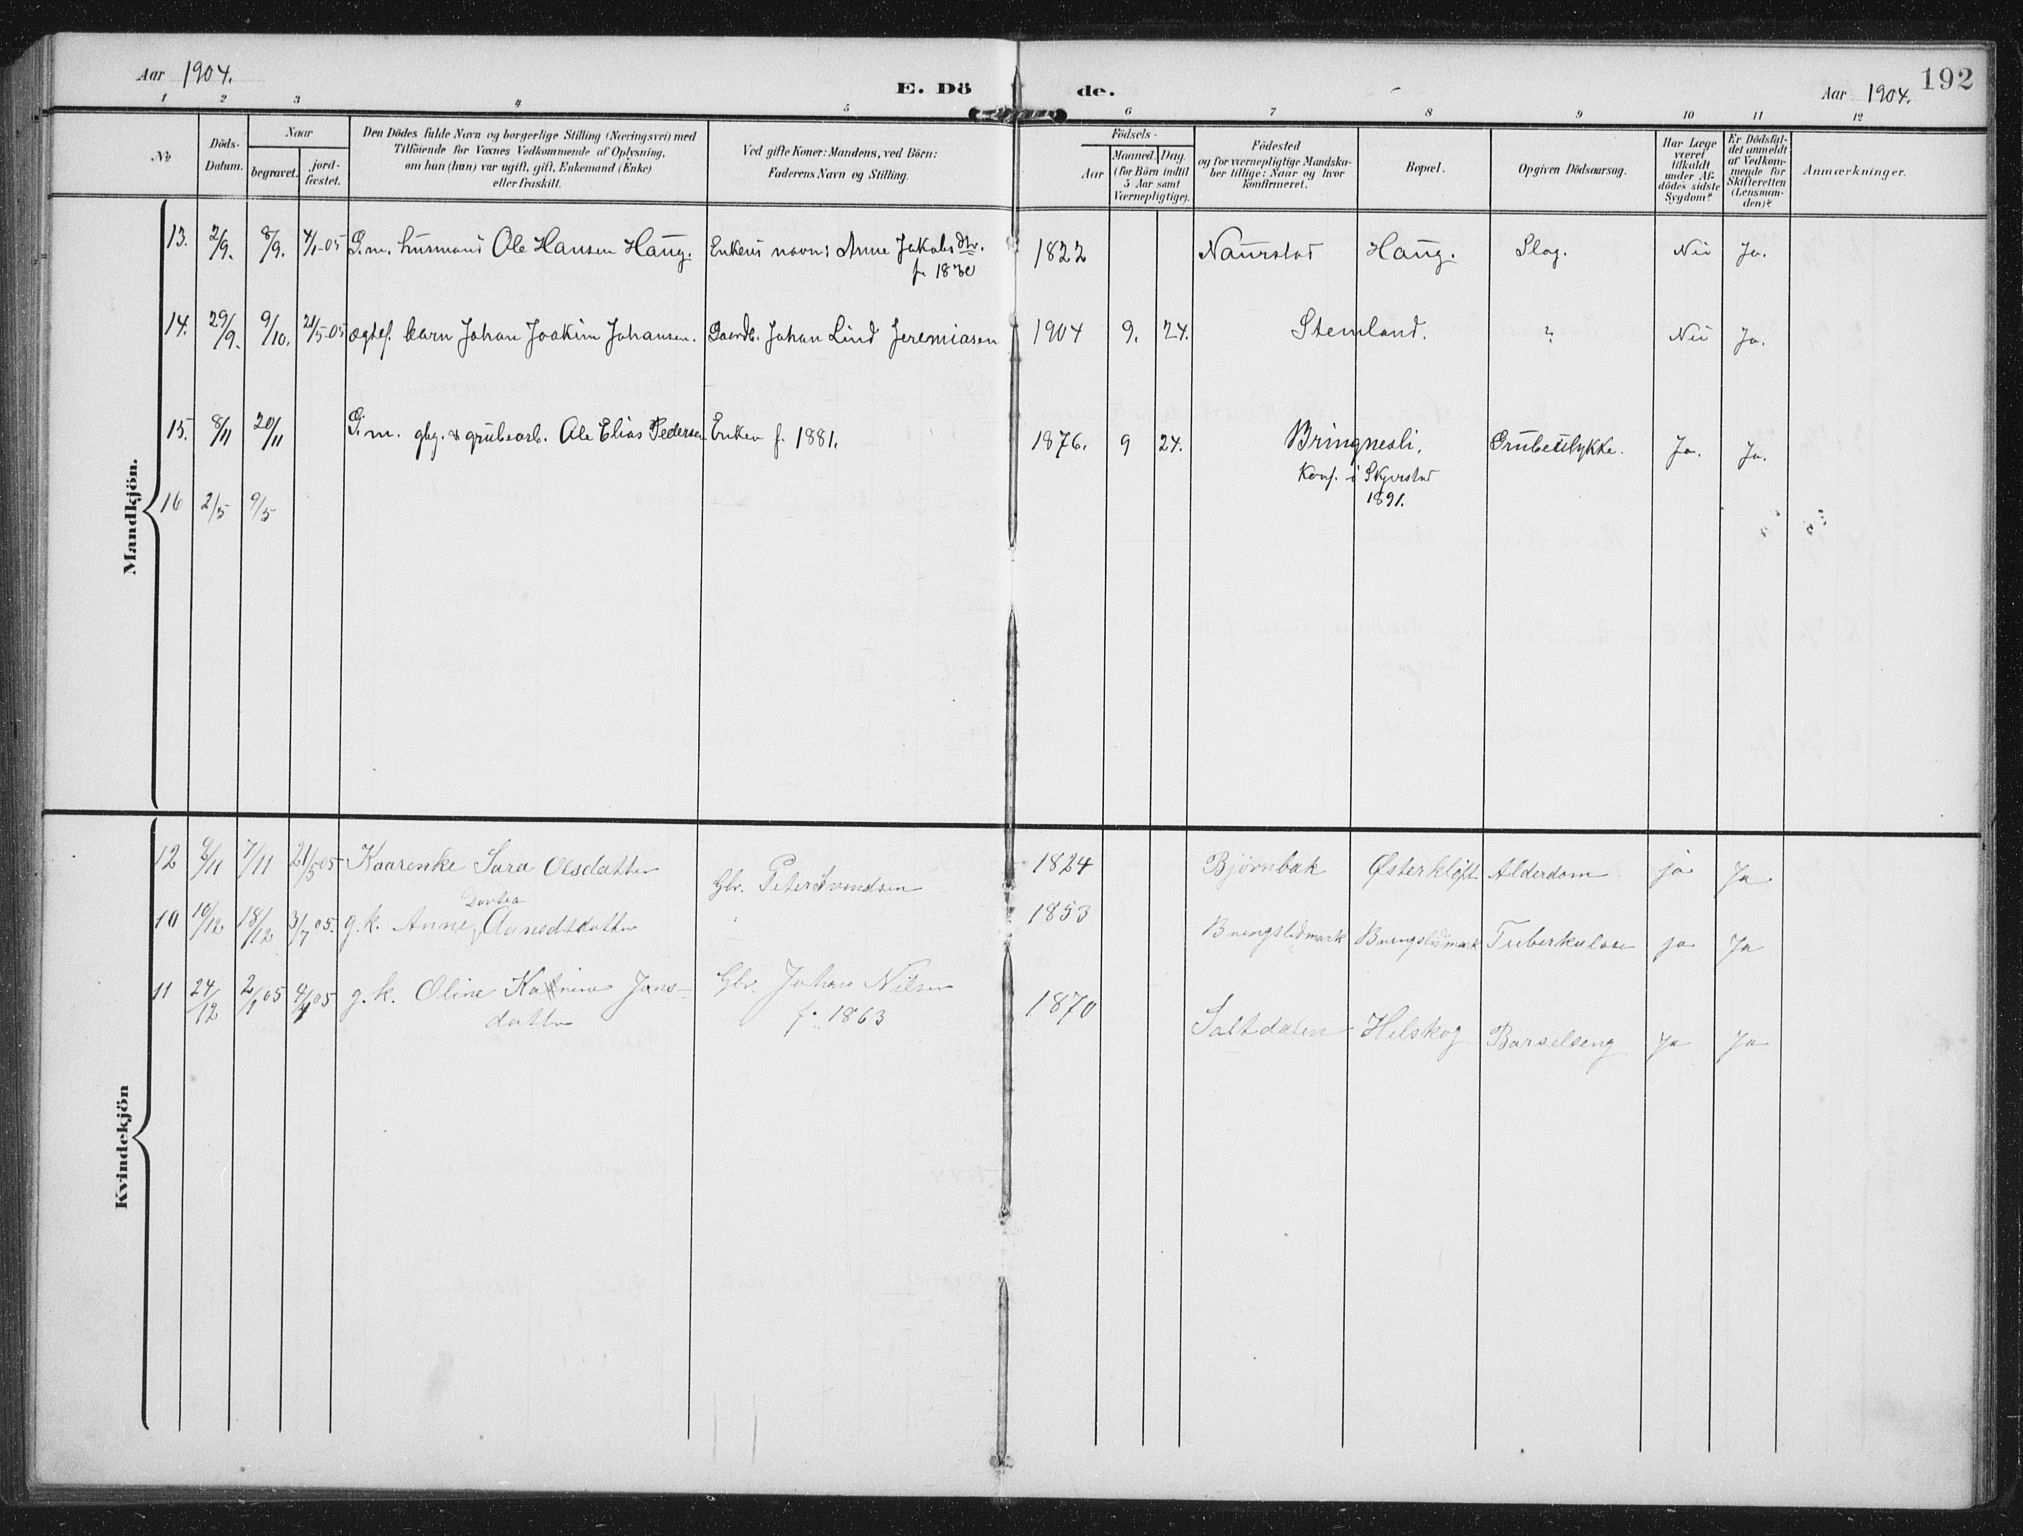 Aar 1904.
E. Dö de.
Aar 1904.
192
1 2 3 4 5 6 7 8 9 10 11 12
No
Döds-
Datum.
Naar
begravet.
jord-
fæstet.
Den Dödes fulde Navn og borgerlige Stilling (Næringsvei) med
Tilföiende for Voxnes Vedkommende af Oplysning,
om han (hun) var ugift, gift, Enkemand (Enke)
eller fraskilt.
Ved gifte Koner: Mandens, ved Börn:
Faderens Navn og Stilling.
Födsels-
Aar
Maaned. Dag.
(for Börn indtil
5 Aar samt
Værnepligtige).
Födested
og for værnepligtige Mandska-
ber tillige: Naar og hvor
konfirmeret.
Bopæl.
Opgiven Dödsaarsag.
Har Læge
været
tilkaldt
under Af-
dödes sidste
Sygdom?
Er Dödsfal-
det anmeldt
af Vedkom-
mende for
Skifteretten
(Lensman-
den)?
Anmærkninger.
Mandkjön.
13. 2/9. 8/9. 4/1-05 G.m. husmand Ole Hansen Haug. Enkens navn: Anne Jakobsdtr. 1822 Naurstad Haug. Slag. Nei Ja.
14. 29/9. 9/10. 21/5-05 ægtef. barn Johan Joakim Johansen. Gaardb. Johan Lind Jeremiasen 1904 9. 24. Stemland. ? Nei Ja.
15. 8/11 20/11 G.m. gbg. & grubearb. Ole Elias Pedersen Enken f. 1881. 1876. 9 24. Bringnesli. Grubeulykke. Ja. Ja.
Konf. i Skjerstad
1891.
16 2/5 9/5
Kvindekjön
12 2/11 7/11 21/5 05 Kaarenke Sara Olsdatter Gbr. Peter Svendsen 1824 Bjørnbak Østerkløft Alderdom ja Ja
Dortea
10 10/12 18/12 3/7 05. g.k. Anne 1853 Bringslidmark Bringslidmark Tuberkulose ja Ja
11 24/12 2/1 05 g.k. Oline Katrina Jens- Gbr. Johan Nilsen 1870 Saltdalen Helskog Barselseng Ja Ja
datter f. 1863